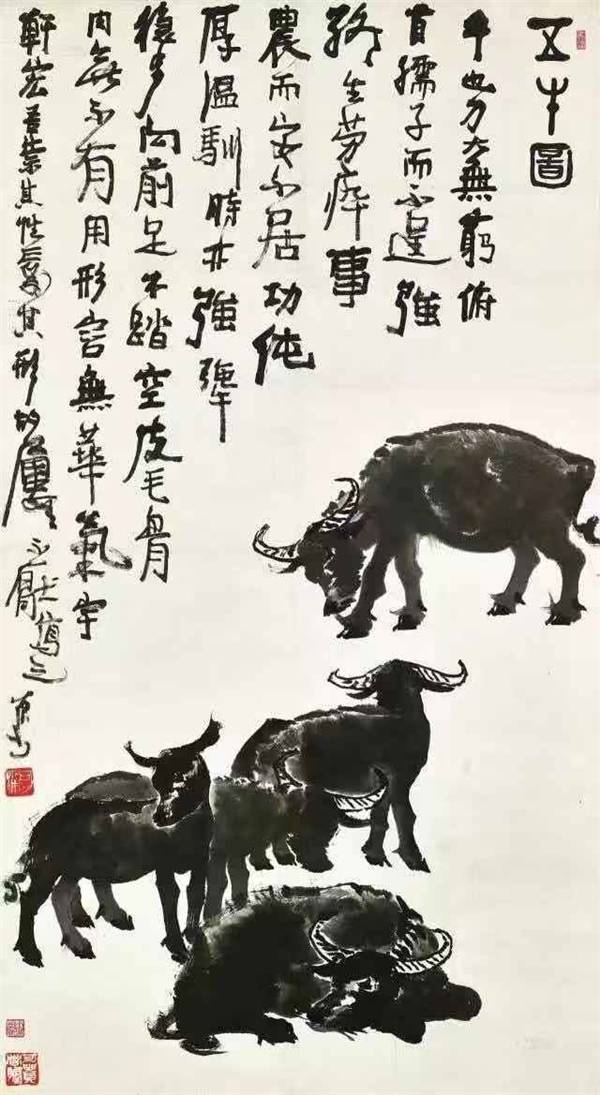 五牛圖
牛也力大無窮俯
首孺子而不逞強
終生勞瘁事
農而安不居功純
厚温馴時亦強犟
穩步向前足不踏空皮毛骨
肉無不有用形容無華氣宇
軒宏吾崇其性愛其形故屢屢不厭寫之 可染